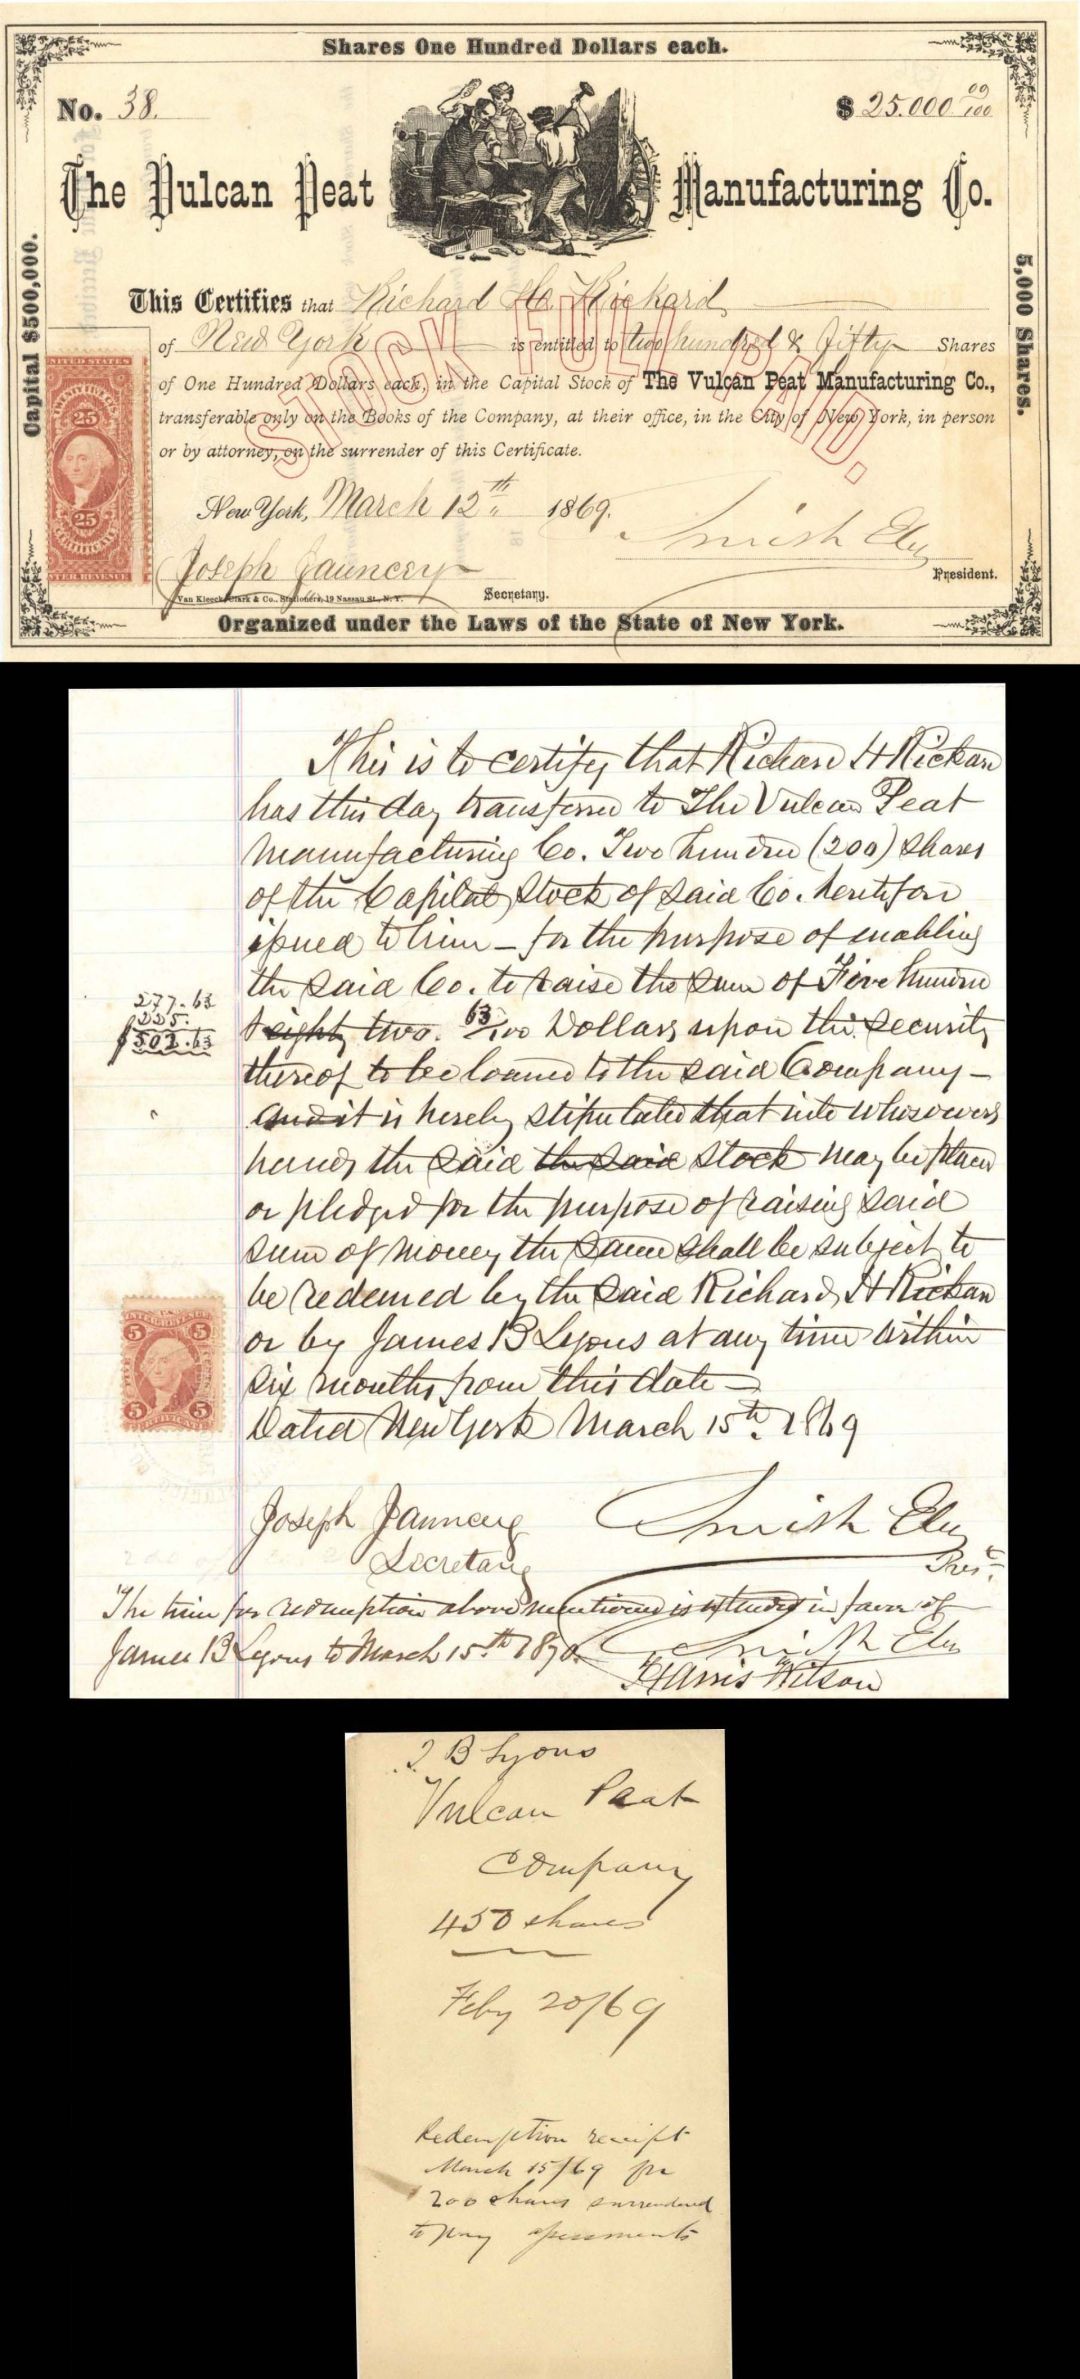 Shares One Hundred Dollars each.
No. 38.
$ 25.000 00/100
The Vulcan Peat Manufacturing Co.
Capital $500,000.
5,000 Shares.
This Certifies that Richard H. Rickard
of New York is entitled to two hundred & fifty Shares
of One Hundred Dollars each, in the Capital Stock of The Vulcan Peat Manufacturing Co.,
transferable only on the Books of the Company, at their office, in the City of New York, in person
or by attorney, on the surrender of this Certificate.
STOCK FULL PAID.
UNITED STATES
25
25
CERTIFICATE
INTER. REVENUE
New York, March 12th 1869.
Smith Ely
President.
Joseph Jauncey
Secretary.
Van Kleeck, Clark & Co., Stationers, 19 Nassau St., N. Y.
Organized under the Laws of the State of New York.
This is to certify that Richard H Rickard
has this day transferred to The Vulcan Peat
Manufacturing Co. Two hundred (200) shares
of the Capital Stock of said Co. heretofore
issued to him – for the purpose of enabling
the said Co. to raise the sum of Five hundred
& eighty two. 63/100 Dollars upon the security
thereof to be loaned to the said Company –
and it is hereby stipulated that into whosoevers
hands the said the said stock may be placed
or pledged for the purpose of raising said
sum of money the same shall be subject to
be redeemed by the said Richard H Rickard
or by James B Lyons at any time within
six months from this date –
Dated New York March 15th. 1869
277.63
225.
$502.63
5 5
5 5
Joseph Jauncey
Secretary
Smith Ely
Prest.
The time for redemption above mentioned is extended in favor of
James B Lyons to March 15th 1870.
Smith Ely
Harris Wilson
J B Lyons
Vulcan Peat
Company
450 shares
Feby 20/69
Redemption receipt
March 15/69 for
200 shares surrendered
to pay assessments